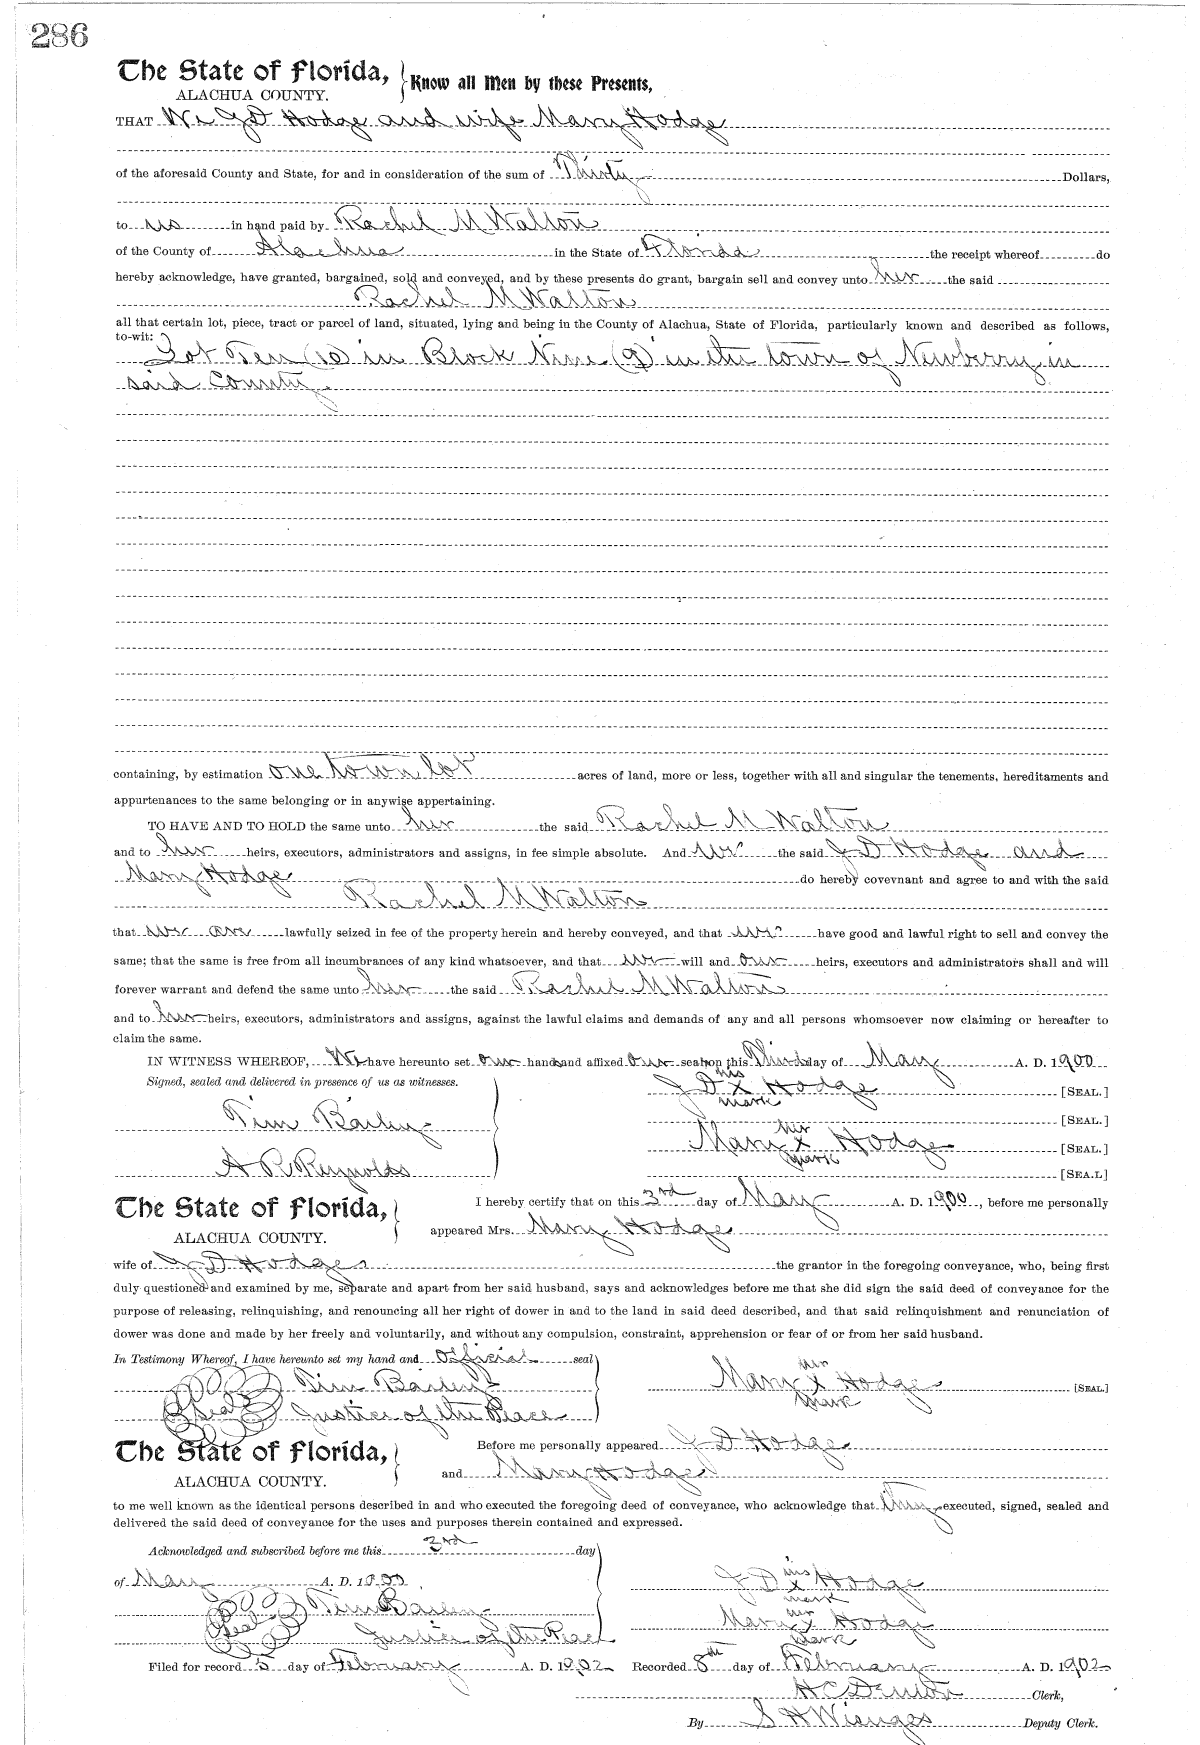 286
The State of Florida, Know all Men by these Presents,
ALACHUA COUNTY.
THAT We J D Hodge and wife Mary Hodge
of the aforesaid County and State, for and in consideration of the sum of Thirty Dollars,
to us in hand paid by Rachel M Walton
of the County of Alachua in the State of Florida the receipt whereof do
hereby acknowledge, have granted, bargained, sold and conveyed, and by these presents do grant, bargain sell and convey unto her the said
Rachel M Walton
all that certain lot, piece, tract or parcel of land, situated, lying and being in the County of Alachua, State of Florida, particularly known and described as follows,
to-wit:
Lot Ten (10) in Block Nine (9) in the town of Newberry in
said County.
containing, by estimation one town lot acres of land, more or less, together with all and singular the tenements, hereditaments and
appurtenances to the same belonging or in anywise appertaining.
TO HAVE AND TO HOLD the same unto her the said Rachel M Walton
and to her heirs, executors, administrators and assigns, in fee simple absolute. And we the said J D Hodge and
Mary Hodge do hereby covevnant and agree to and with the said
Rachel M Walton
that we are lawfully seized in fee of the property herein and hereby conveyed, and that we have good and lawful right to sell and convey the
same; that the same is free from all incumbrances of any kind whatsoever, and that we will and our heirs, executors and administrators shall and will
forever warrant and defend the same unto her the said Rachel M Walton
and to her heirs, executors, administrators and assigns, against the lawful claims and demands of any and all persons whomsoever now claiming or hereafter to
claim the same.
IN WITNESS WHEREOF, We have hereunto set our hands and affixed our seals on this Third day of May A. D. 1900
Signed, sealed and delivered in presence of us as witnesses.
his
J D X Hodge [SEAL.]
mark
Tim Bailey [SEAL.]
her
Mary X Hodge [SEAL.]
mark
A R Reynolds [SEA.L]
The State of Florida, I hereby certify that on this 3rd day of May A. D. 1900, before me personally
ALACHUA COUNTY. appeared Mrs. Mary Hodge
wife of J D Hodge the grantor in the foregoing conveyance, who, being first
duly questioned and examined by me, separate and apart from her said husband, says and acknowledges before me that she did sign the said deed of conveyance for the
purpose of releasing, relinquishing, and renouncing all her right of dower in and to the land in said deed described, and that said relinquishment and renunciation of
dower was done and made by her freely and voluntarily, and without any compulsion, constraint, apprehension or fear of or from her said husband.
In Testimony Whereof, I have hereunto set my hand and official seal
her
Tim Bailey Mary X Hodge [SEAL.]
mark
Seal Justice of the Peace
The State of Florida, Before me personally appeared J D Hodge
ALACHUA COUNTY. and Mary Hodge
to me well known as the identical persons described in and who executed the foregoing deed of conveyance, who acknowledge that they executed, signed, sealed and
delivered the said deed of conveyance for the uses and purposes therein contained and expressed.
Acknowledged and subscribed before me this 3rd day
his
of May A. D. 1900. J D X Hodge
mark
Tim Bailey
her
Seal Mary X Hodge
mark
Justice of the Peace
Filed for record 5 day of February A. D. 1902 Recorded 8th day of February A. D. 1902
H C Denton Clerk,
By S H Wienges Deputy Clerk.